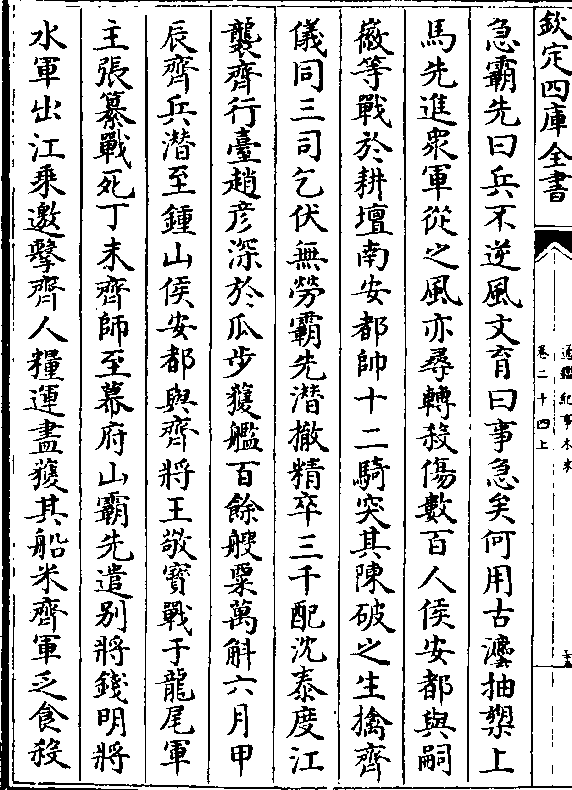 欽定四庫全書
通鑑紀事本末
卷二十四上
急霸先曰兵不逆風文育曰事急矣何用古灋抽槊上
馬先進衆軍從之風亦尋轉殺傷數百人侯安都與嗣
徽等戰於耕壇南安都帥十二騎突其陳破之生擒齊
儀同三司乞伏無勞霸先潛撤精卒三千配沈泰度江
襲齊行臺趙彦深於瓜步獲艦百餘艘粟萬斛六月甲
辰齊兵潛至鍾山侯安都與齊將王敬寳戰于龍尾軍
主張纂戰死丁未齊師至幕府山霸先遣别將錢明將
水軍出江乘邀擊齊人糧運盡獲其船米齊軍乏食殺